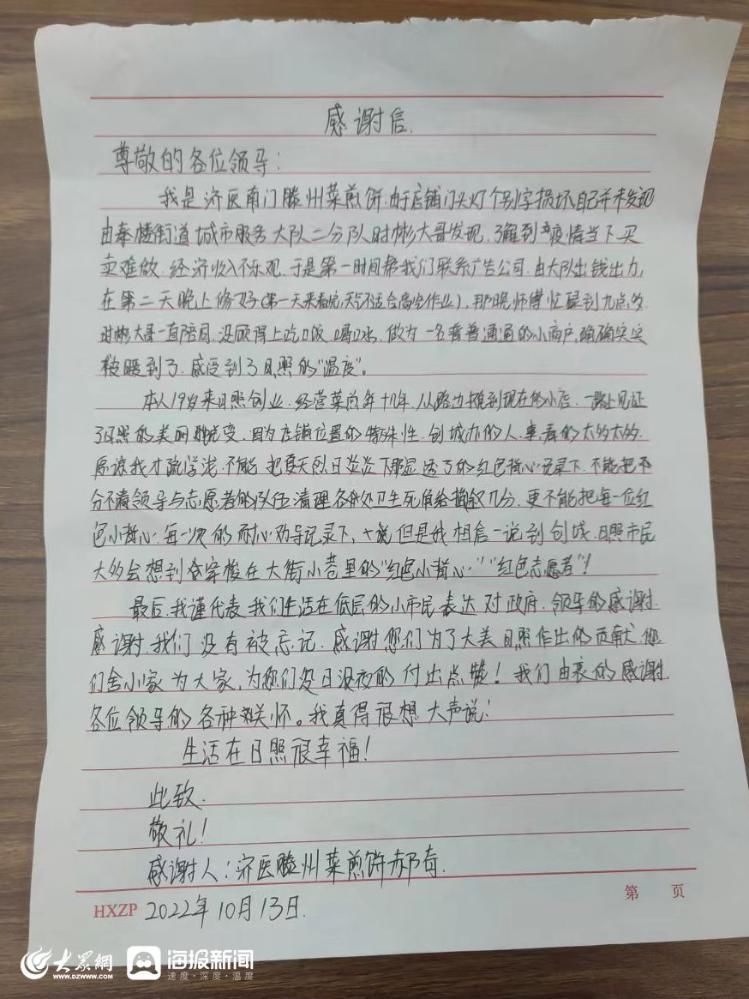 感谢信.
尊敬的各位领导:
我是济医南门滕州菜煎饼.由于店铺门头灯个别字损坏.自己并未发现
由秦楼街道城市服务大队二分队时彬大哥发现.了解到疫情当下买
卖难做.经济收入不乐观.于是第一时间帮我们联系广告公司.由大队出钱出力,
在第二天晚上修好(第一天来看完,天气不适合高空作业),那晚师傅忙碌到九点多
时彬大哥一直陪同.没顾得上吃口饭喝口水.做为一名普普通通的小商户,确确实实
被暖到了.感受到了日照的"温度"。
本人19岁来日照创业.经营菜煎饼十几年.从路边摊到现在的小店.一路上见证
了日照的美丽蜕变.因为店铺位置的特殊性.创城办的人.来看的太多太多.
原谅我才疏学浅.不能把夏天烈日炎炎下那湿透了的红色背心记录下.不能把不
分不清领导与志愿者的队伍清理各处卫生死角给描叙几分.更不能把每一位红
色小背心.每一次的耐心劝导记录下,但是我相信一说到创城.日照市民
大多会想到穿梭在大街小巷里的"红色小背心""红色志愿者"!
最后.我谨代表我们生活在低层的小市民表达对政府.领导的感谢.
感谢我们没有被忘记.感谢您们为了大美日照作出的贡献.您
们舍小家为大家,为您们没日没夜的付出点赞!我们由衷的感谢
各位领导的各种关怀。我真得很想大声说:
生活在日照很幸福!
此致.
敬礼!
感谢人:济医滕州菜煎饼郝奇.
第 页
HXZP 2022年10月13日.
大众网 海报新闻
WWW.DZWWW.COM 速度·深度·温度